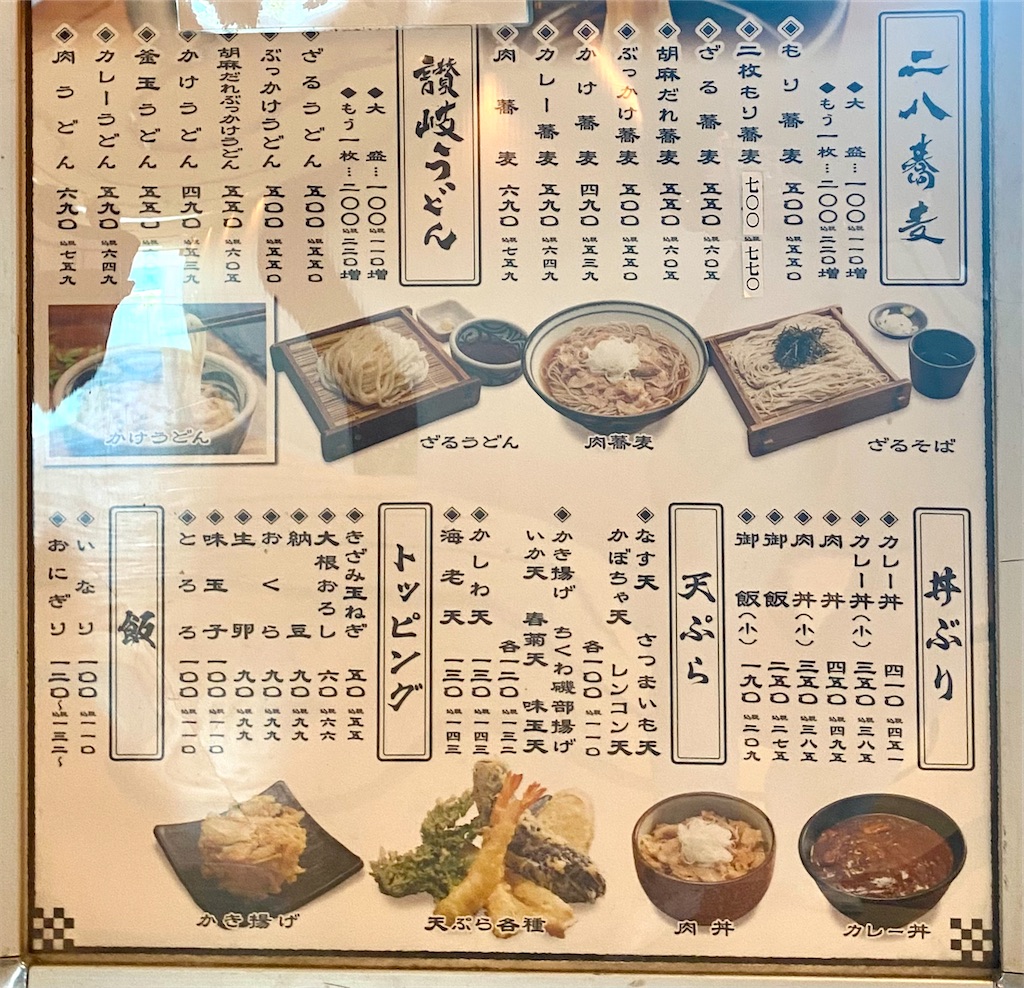 二八蕎麦
◆大盛…一〇〇税込一一〇増
◆もう一枚…二〇〇税込二二〇増
もり蕎麦 五〇〇 税込五五〇
二枚もり蕎麦 七〇〇 税込七七〇
ざる蕎麦 五五〇 税込六〇五
胡麻だれ蕎麦 五五〇 税込六〇五
ぶっかけ蕎麦 五〇〇 税込五五〇
かけ蕎麦 四九〇 税込五三九
カレー蕎麦 五九〇 税込六四九
肉蕎麦 六九〇 税込七五九
讃岐うどん
◆大盛…一〇〇税込一一〇増
◆もう一枚…二〇〇税込二二〇増
ざるうどん 五〇〇 税込五五〇
ぶっかけうどん 五〇〇 税込五五〇
胡麻だれぶっかけうどん 五五〇 税込六〇五
かけうどん 四九〇 税込五三九
釜玉うどん 五五〇
カレーうどん 五九〇 税込六四九
肉うどん 六九〇 税込七五九
ざるそば
肉蕎麦
ざるうどん
かけうどん
丼ぶり
カレー丼 四一〇 税込四五一
カレー丼(小) 三五〇 税込三八五
肉丼 四五〇 税込四九五
肉丼(小) 三五〇 税込三八五
御飯 二五〇 税込二七五
御飯(小) 一九〇 税込二〇九
天ぷら
なす天 さつまいも天
かぼちゃ天 レンコン天
各一〇〇 税込一一〇
かき揚げ ちくわ磯部揚げ
いか天 春菊天 味玉天
各一二〇 税込一三二
かしわ天 一三〇 税込一四三
海老天 一三〇 税込一四三
トッピング
きざみ玉ねぎ 五〇 税込五五
大根おろし 六〇 税込六六
納豆 九〇 税込九九
おくら 九〇 税込九九
生卵 九〇 税込九九
味玉子 一〇〇 税込一一〇
とろろ 一〇〇 税込一一〇
飯
いなり 一〇〇 税込一一〇
おにぎり 一二〇〜 税込一三二〜
カレー丼
肉丼
天ぷら各種
かき揚げ